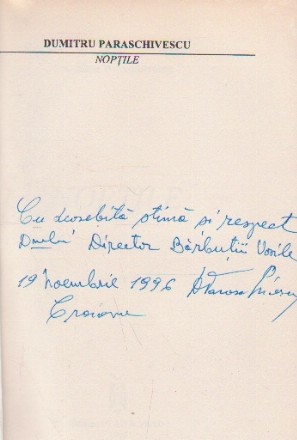 DUMITRU PARASCHIVESCU
NOPȚILE
Cu deosebită stimă și respect
Director Bărbuții Vasile
19 noembrie 1996 DParaschivescu
Craiova